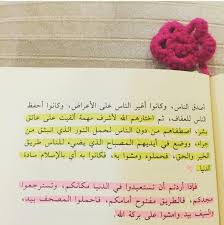 أصدق الناس، وكانوا أغير الناس على الأعراض، وكانوا أحفظ
الناس للعفاف، ثم اختارهم الله لأشرف مهمة ألقيت على عاتق
بشر، اصطفاهم من دون الناس لحمل النور الذي انبثق من
حراء، ووضع في أيديهم المصباح الذي يضيء للناس طريق
الخير والحق، فحملوه ومشوا به، فكانوا به أي بالإسلام سادة
الدنيا.
فإذا أردتم أن تستعيدوا في الدنيا مكانكم، وتسترجعوا
مجدكم، فالطريق مفتوح أمامكم، فاحملوا المصحف بيد،
والسيف بيد وامشوا على بركة الله.